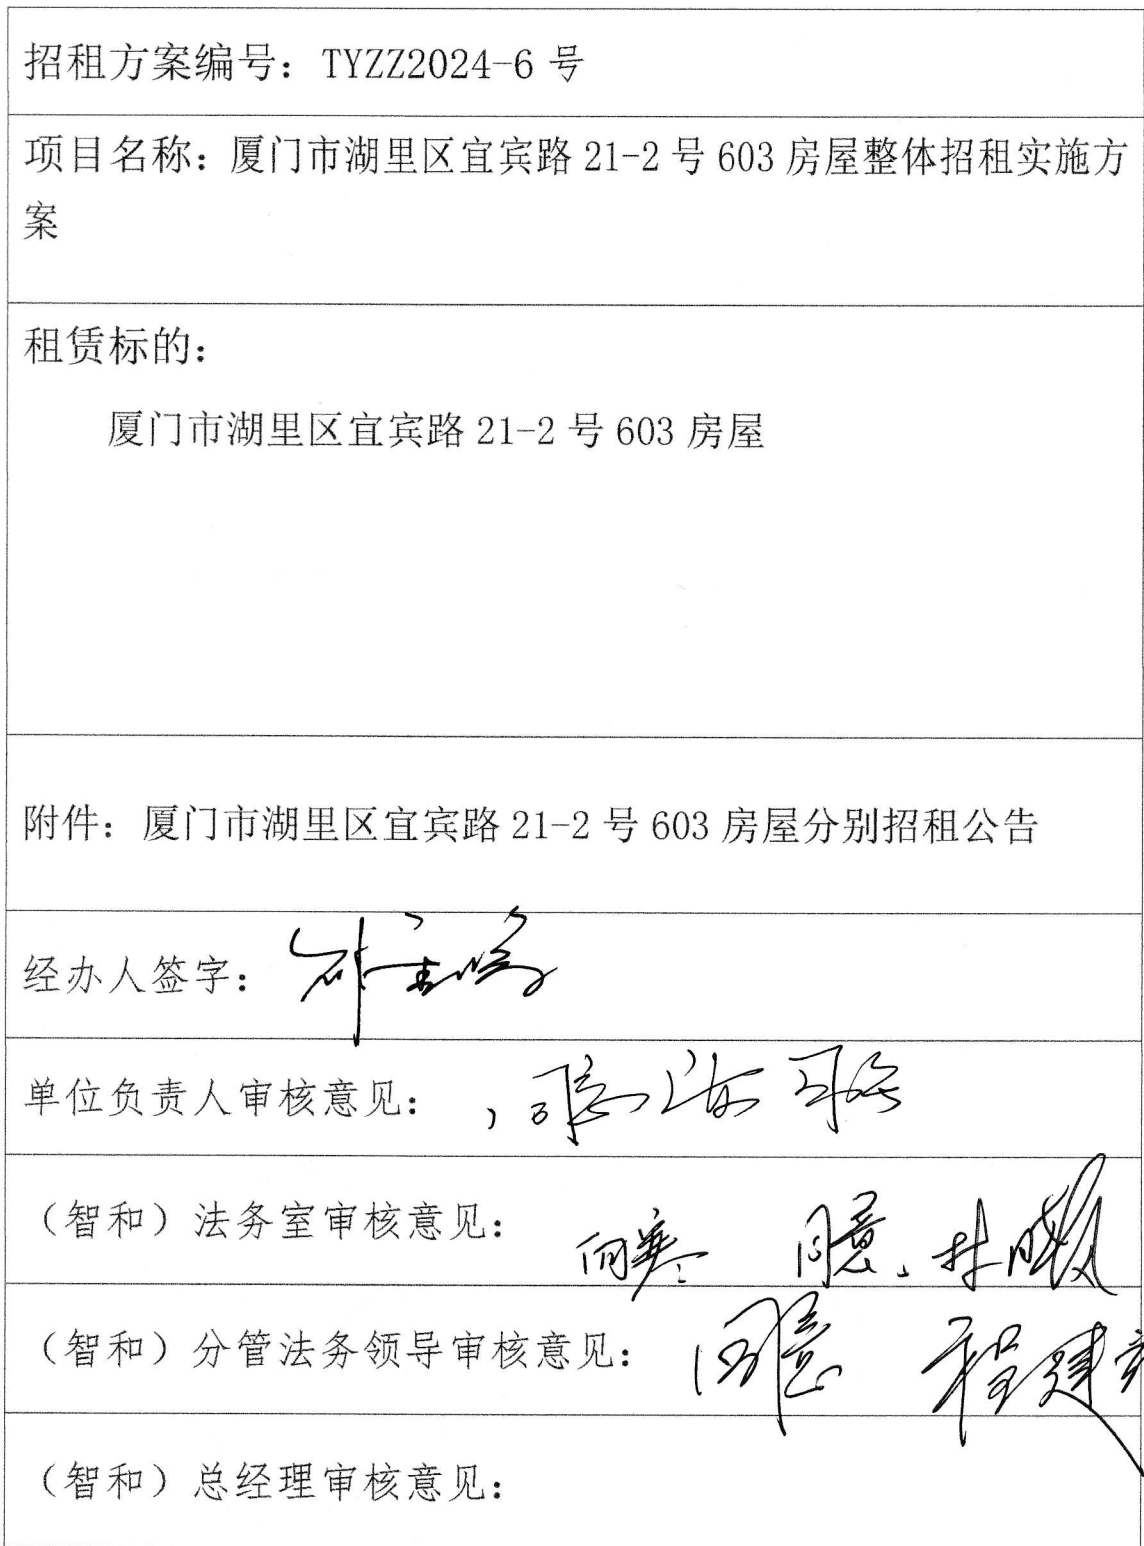 招租方案编号：TYZZ2024-6 号
项目名称：厦门市湖里区宜宾路 21-2 号 603 房屋整体招租实施方
案
租赁标的：
厦门市湖里区宜宾路 21-2 号 603 房屋
附件：厦门市湖里区宜宾路 21-2 号 603 房屋分别招租公告
经办人签字：
单位负责人审核意见：同意
（智和）法务室审核意见：同意
（智和）分管法务领导审核意见：同意 程建
（智和）总经理审核意见：